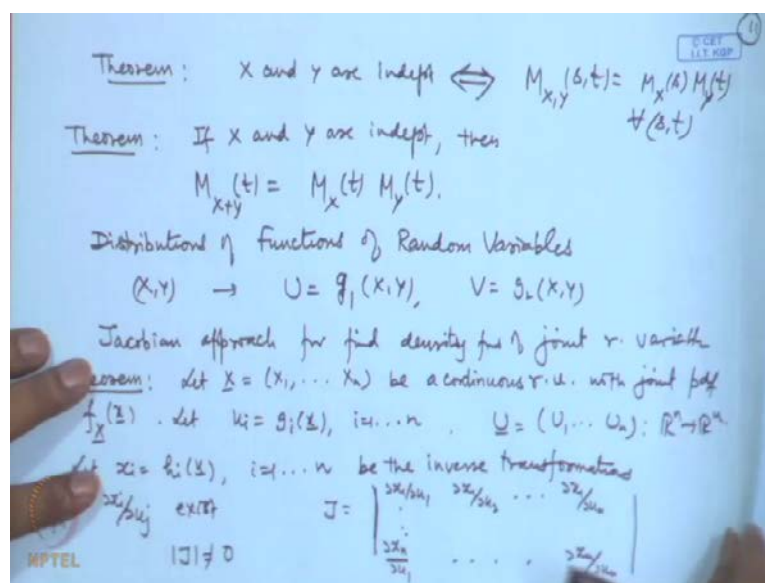 11
© CET
I.I.T. KGP
Theorem : X and Y are indept ⟺ M_{X,Y}(s,t) = M_X(s) M_Y(t)
∀ (s,t)
Theorem : If X and Y are indept, then
M_{X+Y}(t) = M_X(t) M_Y(t).
Distributions of Functions of Random Variables
(X,Y) → U = g_1(X,Y), V = g_2(X,Y)
Jacobian approach for find density fns of joint r. variables
eorem : Let X = (X_1, ... X_n) be a continuous r.u. with joint pdf
f_X(x) . Let u_i = g_i(x), i=1...n . U = (U_1 ... U_n) : ℝ^n → ℝ^n
Let x_i = h_i(u), i=1...n be the inverse transformations
∂x_i/∂u_j exist J = | ∂x_1/∂u_1 ∂x_1/∂u_2 ... ∂x_1/∂u_n
|J| ≠ 0 ∂x_n/∂u_1 .... ∂x_n/∂u_n |
NPTEL